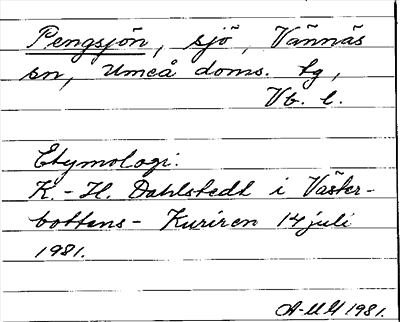 Pengsjön, sjö, Vännäs
sn, Umeå doms. tg,
Vb. l.
Etymologi:
K.-H. Dahlstedt i Väster-
bottens-Kuriren 14 juli
1981.
A-MH 1981.